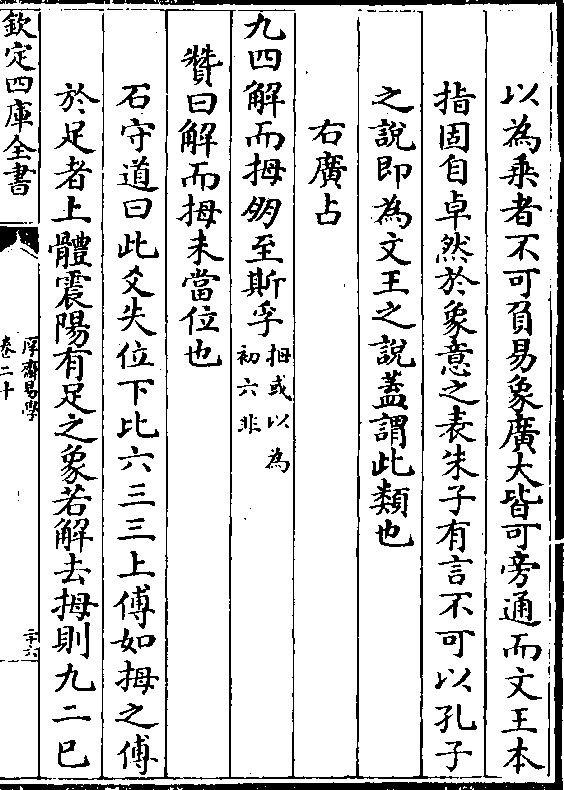 以為乗者不可負易象廣大皆可旁通而文王本
指固自卓然於象意之表朱子有言不可以孔子
之說即為文王之說蓋謂此類也
右廣占
九四解而拇朋至斯孚拇或以為初六非
贊曰解而拇未當位也
石守道曰此爻失位下比六三三上傅如拇之傅
於足者上體震陽有足之象若解去拇則九二已
欽定四庫全書
厚齋易學
卷二十
二十六